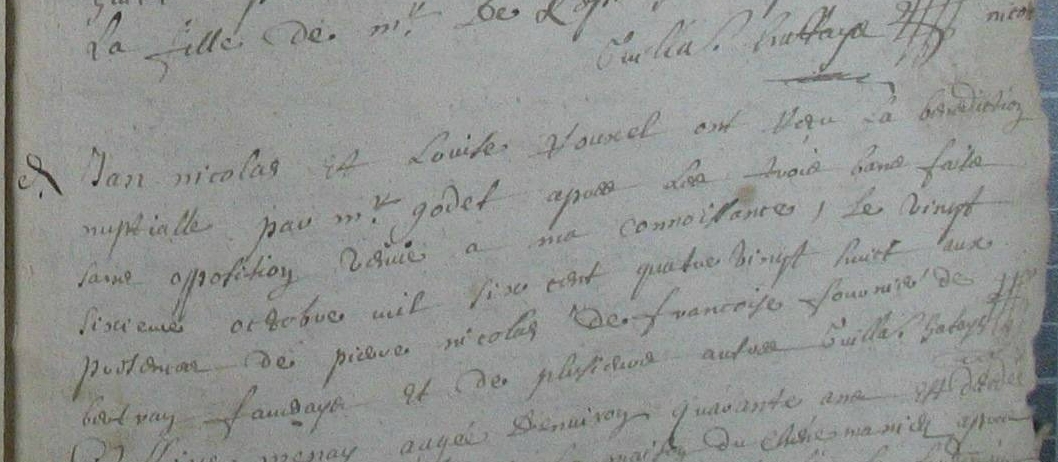 La fille de mr De
Guilla. hattaye nico
Jan nicolas Et Louise Rouxel ont Receu La benediction
nuptialle par mr godet apres Les trois bans faits
sans opposition venue a ma connoissance, Le vingt
sixieme octobre mil six cent quatre vingt huict aux
presences de pierre nicolas de francoise fournier de
bertran faudaye Et de plusieurs autres Guilla. hataye
menay aagée denviron quarante ans Est decedée
maison du apres